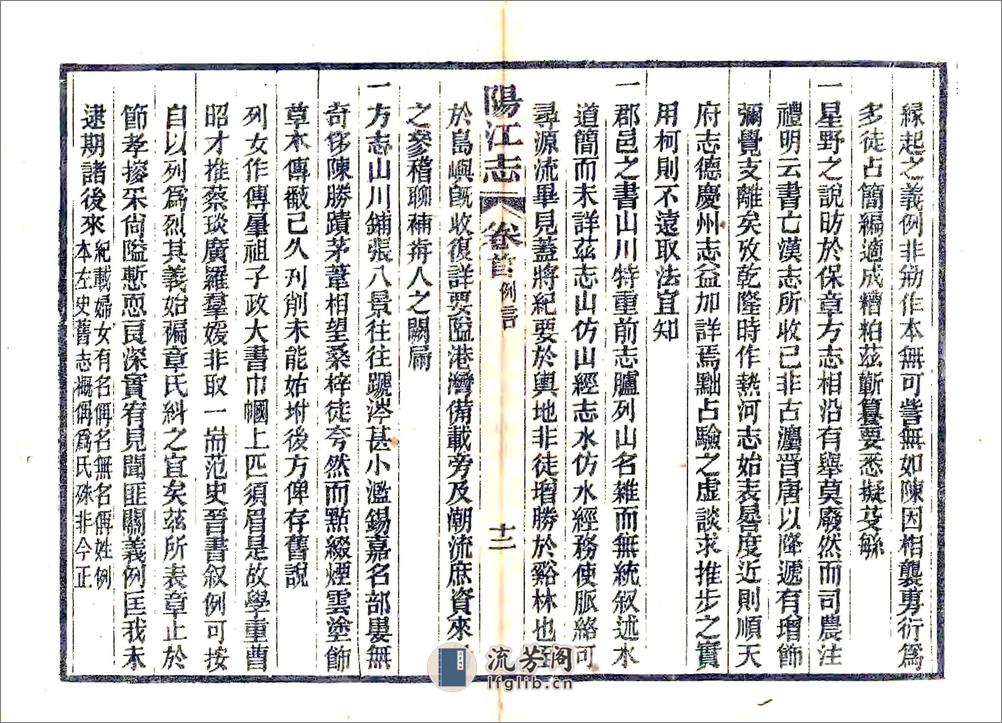 緣起之義例非剏作本無可訾無如陳因相襲勇行爲
多徒占簡編適成糟粕茲蘄纂要悉擬芟緐
一星野之說昉於保章方志相沿有舉莫廢然而司農注
禮明云書亡漢志所收已非古灋晉唐以降遞有增飾
彌覺支離矣攷乾隆時作熱河志始表晷度近則順天
府志德慶州志益加詳焉黜占驗之虛談求推步之實
用柯則不遠取法宜知
一郡邑之書山川特重前志臚列山名雜而無統叙述水
道簡而未詳茲志山仿山經志水仿水經務使脈絡可
尋源流畢見蓋將紀要於輿地非徒增勝於谿林也至
陽江志 卷首 例言 十二
於島嶼旣收復詳要隘港灣備載旁及潮流庶資來
之參稽聊補前人之闕扁
一方志山川鋪張八景往往蹏涔甚小濫錫嘉名部婁無
奇侈陳勝蹟茅葦相望桑梓徒夸然而點綴煙雲塗飾
草木傳觀已久刋削未能姑坿後方俾存舊說
列女作傳肇祖子政大書巾幗上匹須眉是故學重曹
昭才推蔡琰廣羅羣媛非取一耑范史晉書叙例可按
自以列爲烈其義始褊章氏糾之宜矣茲所表章止於
節孝搜采尙隘慙恧良深實有見聞匪關義例匡我未
逮期諸後來 紀載婦女有名偁名無名偁姓例
本左史舊志槪偁爲氏殊非今正
流芳阁
lfglib.cn